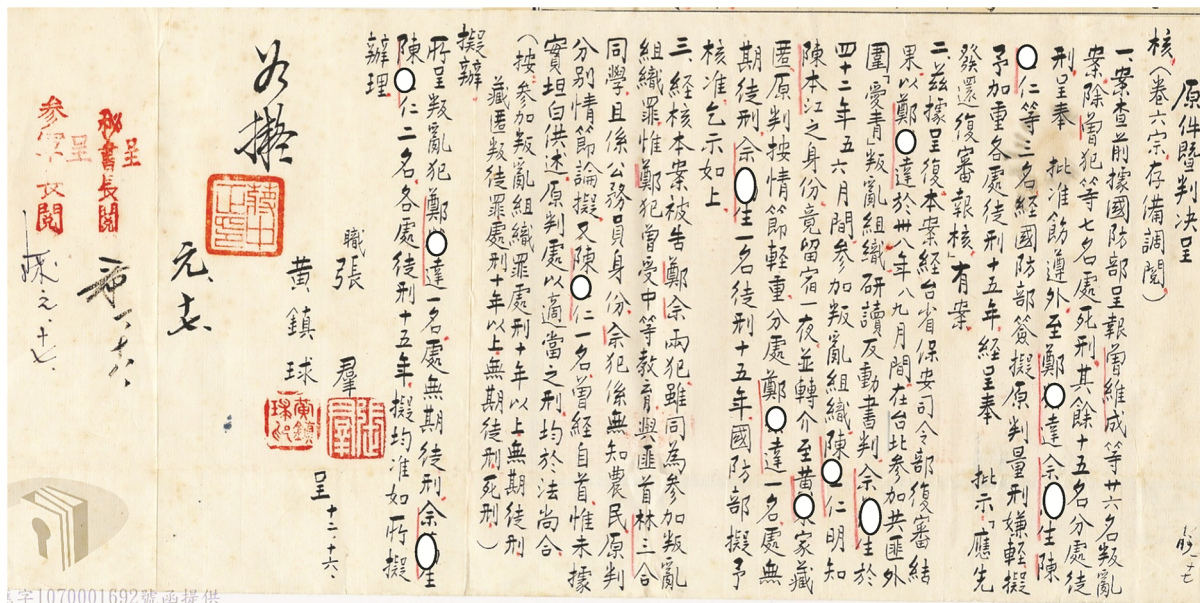 原件暨判決呈
核（卷六宗存備調閱）
一案查前據國防部呈報曾維成等卅六名叛亂
案除曾犯等七名處死刑其餘十五名分處徒
刑呈奉 批准飭遵外至鄭 達余 生陳
仁等三名經國防部簽擬原判量刑嫌輕擬
予加重各處徒刑十五年經呈奉 批示「應先
發還復審報核」有案
二茲據呈復本案經台省保安司令部復審結
果以鄭 達於卅八年八九月間在台北參加共匪外
圍「愛青」叛亂組織研讀反動書刊余 生於
四十二年五六月間參加叛亂組織陳 仁明知
陳本江之身份竟留宿一夜並轉介至黄 家藏
匿原判按情節輕重分處鄭 達一名處無
期徒刑余 生一名徒刑十五年國防部擬予
核准乞示如上
三、經核本案被告鄭余兩犯雖同為參加叛亂
組織罪惟鄭犯曾受中等教育與匪首林三合
同學且係公務員身份余犯係無知農民原判
分別情節論擬又陳 仁一名曾經自首惟未據
實坦白供述原判處以適當之刑均於法尚合
（按參加叛亂組織罪處刑十年以上無期徒刑
藏匿叛徒罪處刑十年以上無期徒刑死刑）
擬辦
所呈叛亂犯鄭 達一名處無期徒刑余 生
陳 仁二名各處徒刑十五年擬均准如所擬
辦理
職張 羣
黃鎮球
呈十二、十六、
張羣
黃鎮球印
如擬
蔣中正印
元、十七、
呈
秘書長閱
呈
參軍長閱
元、十七、
字1070001692號函提供